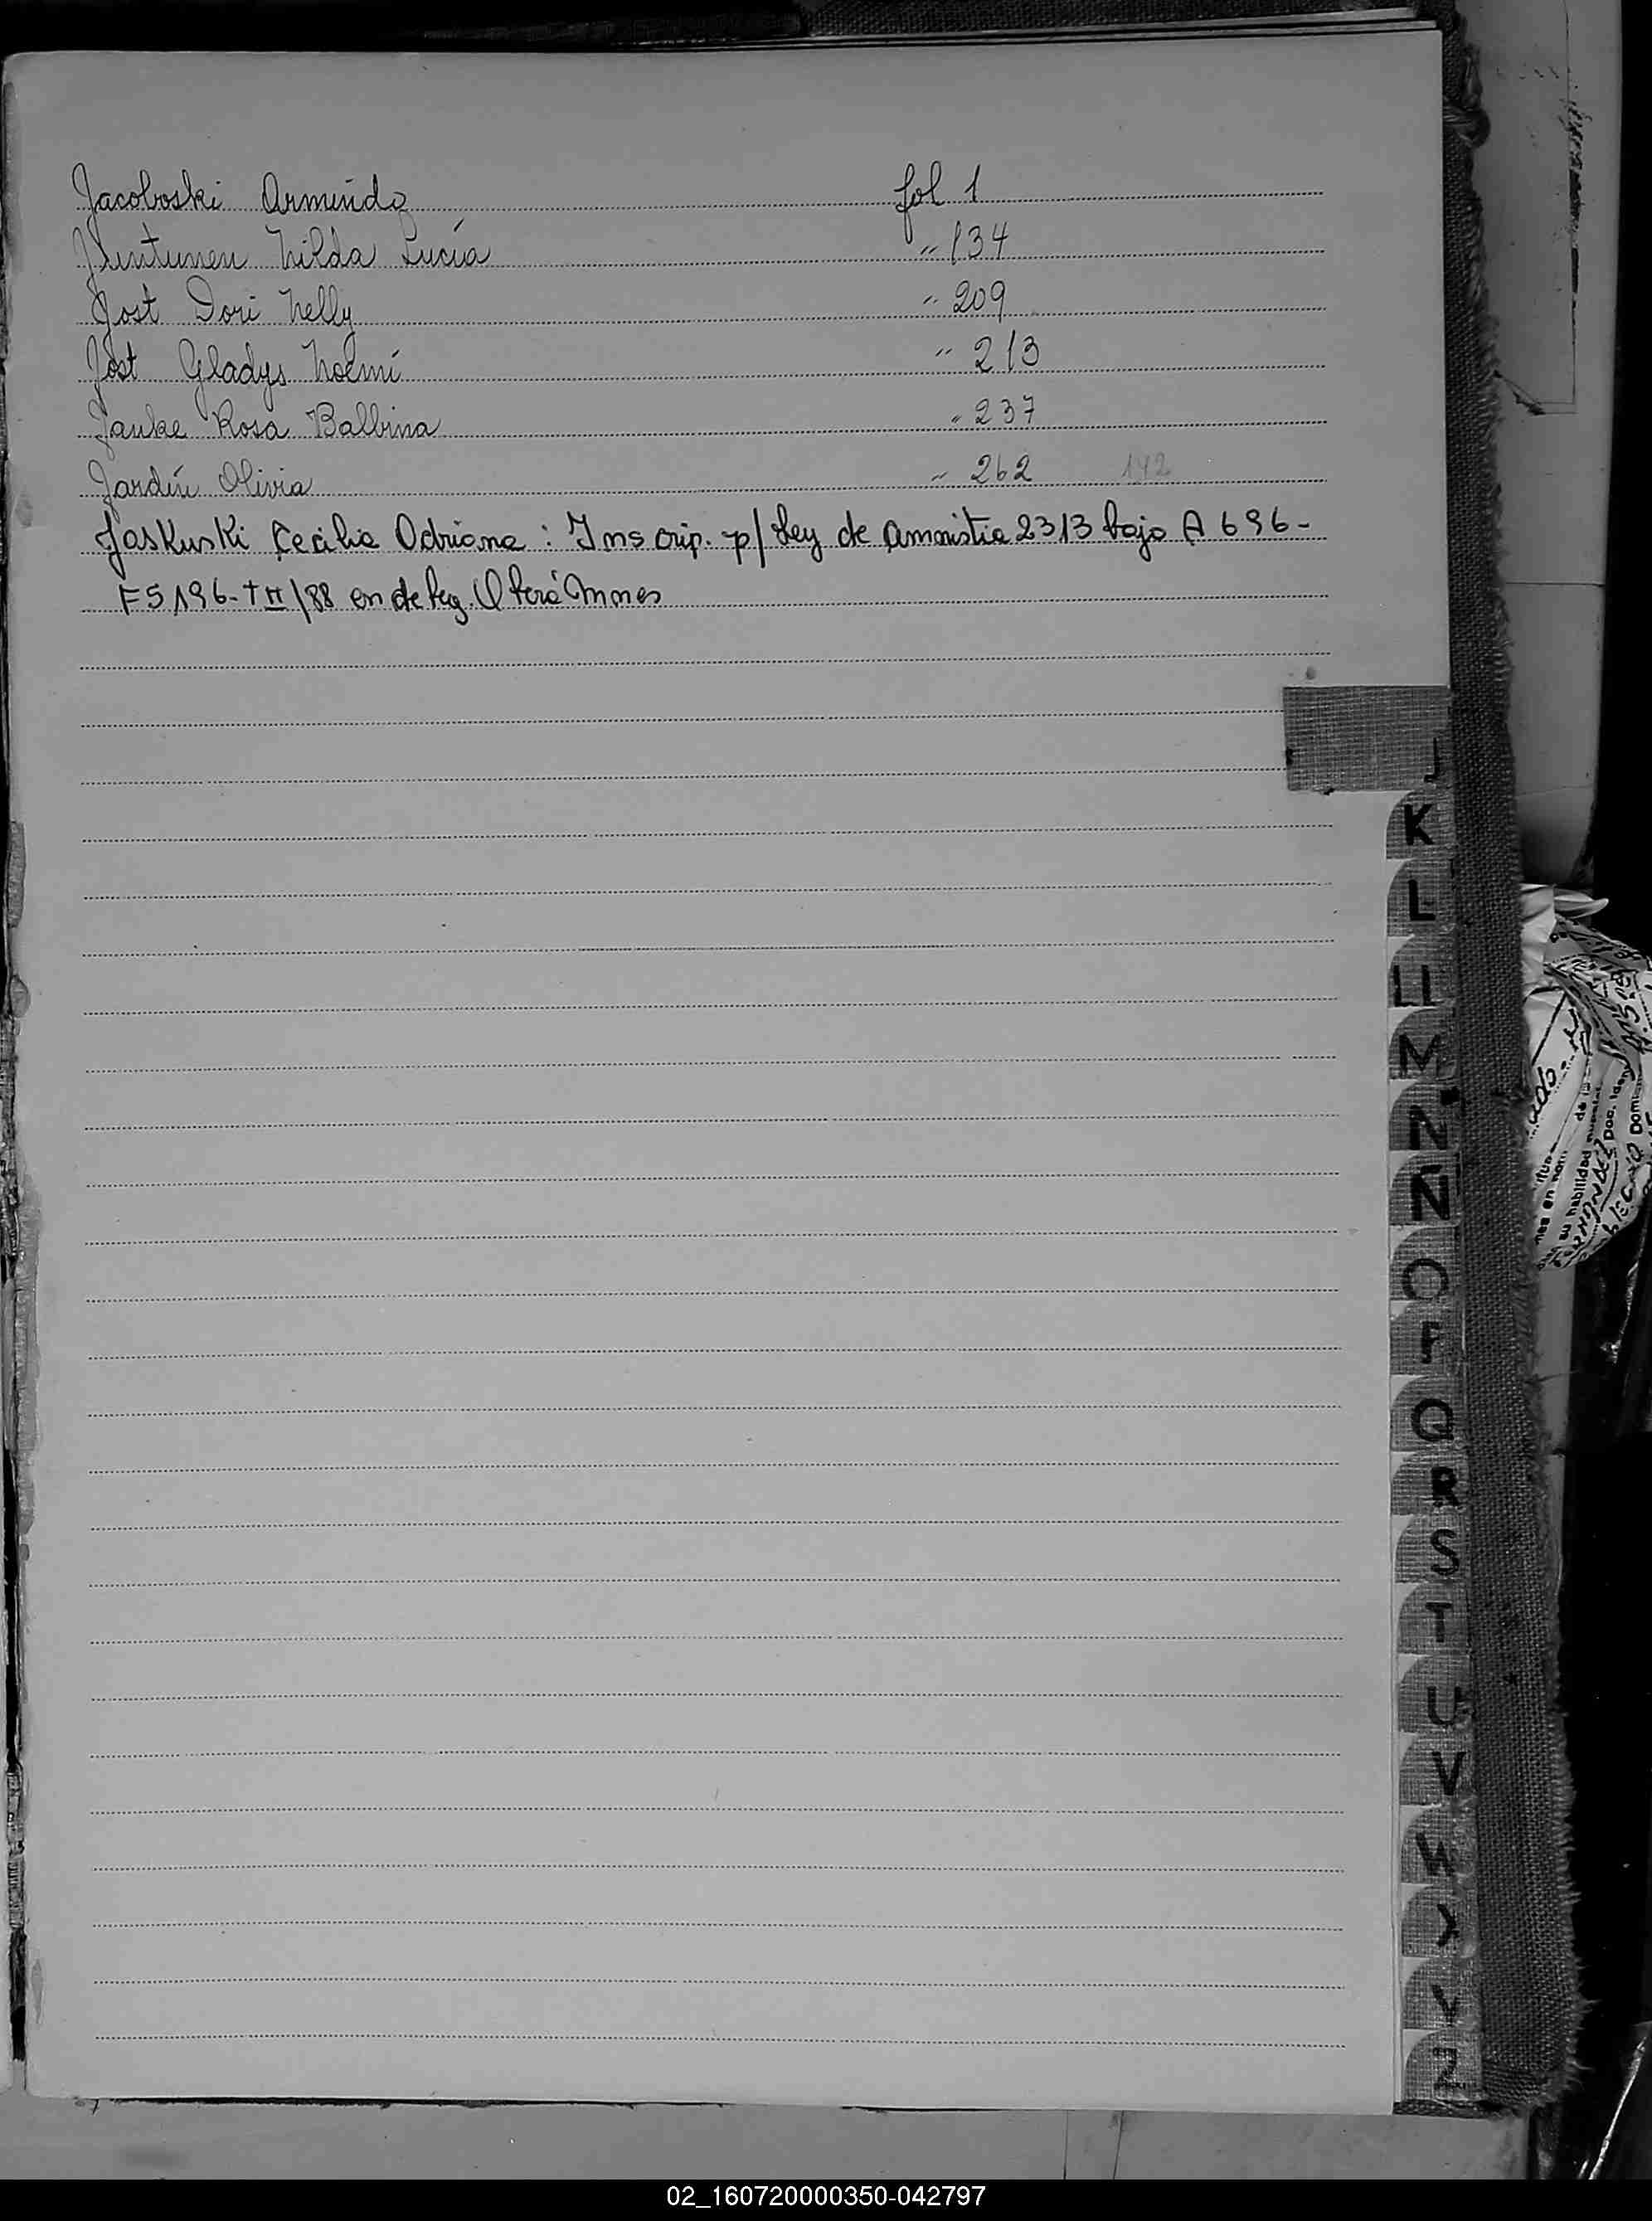 Jacoboski Arminda fol 1
Jintunen Hilda Lucía " 134
Jost Dori Nelly " 209
Jost Gladys Noemí " 213
Janke Rosa Balbina " 237
Jardín Olivia " 262 142
Jaskuski Cecilia Adriana : Inscrip. p/ Ley de Amnistia 2313 bajo A 696-
F5196-TII/88 en deleg. Oberá Mnes
J
K
L
Ll
M
N
Ñ
O
P
Q
R
S
T
U
V
W
X
Y
Z
02_160720000350-042797